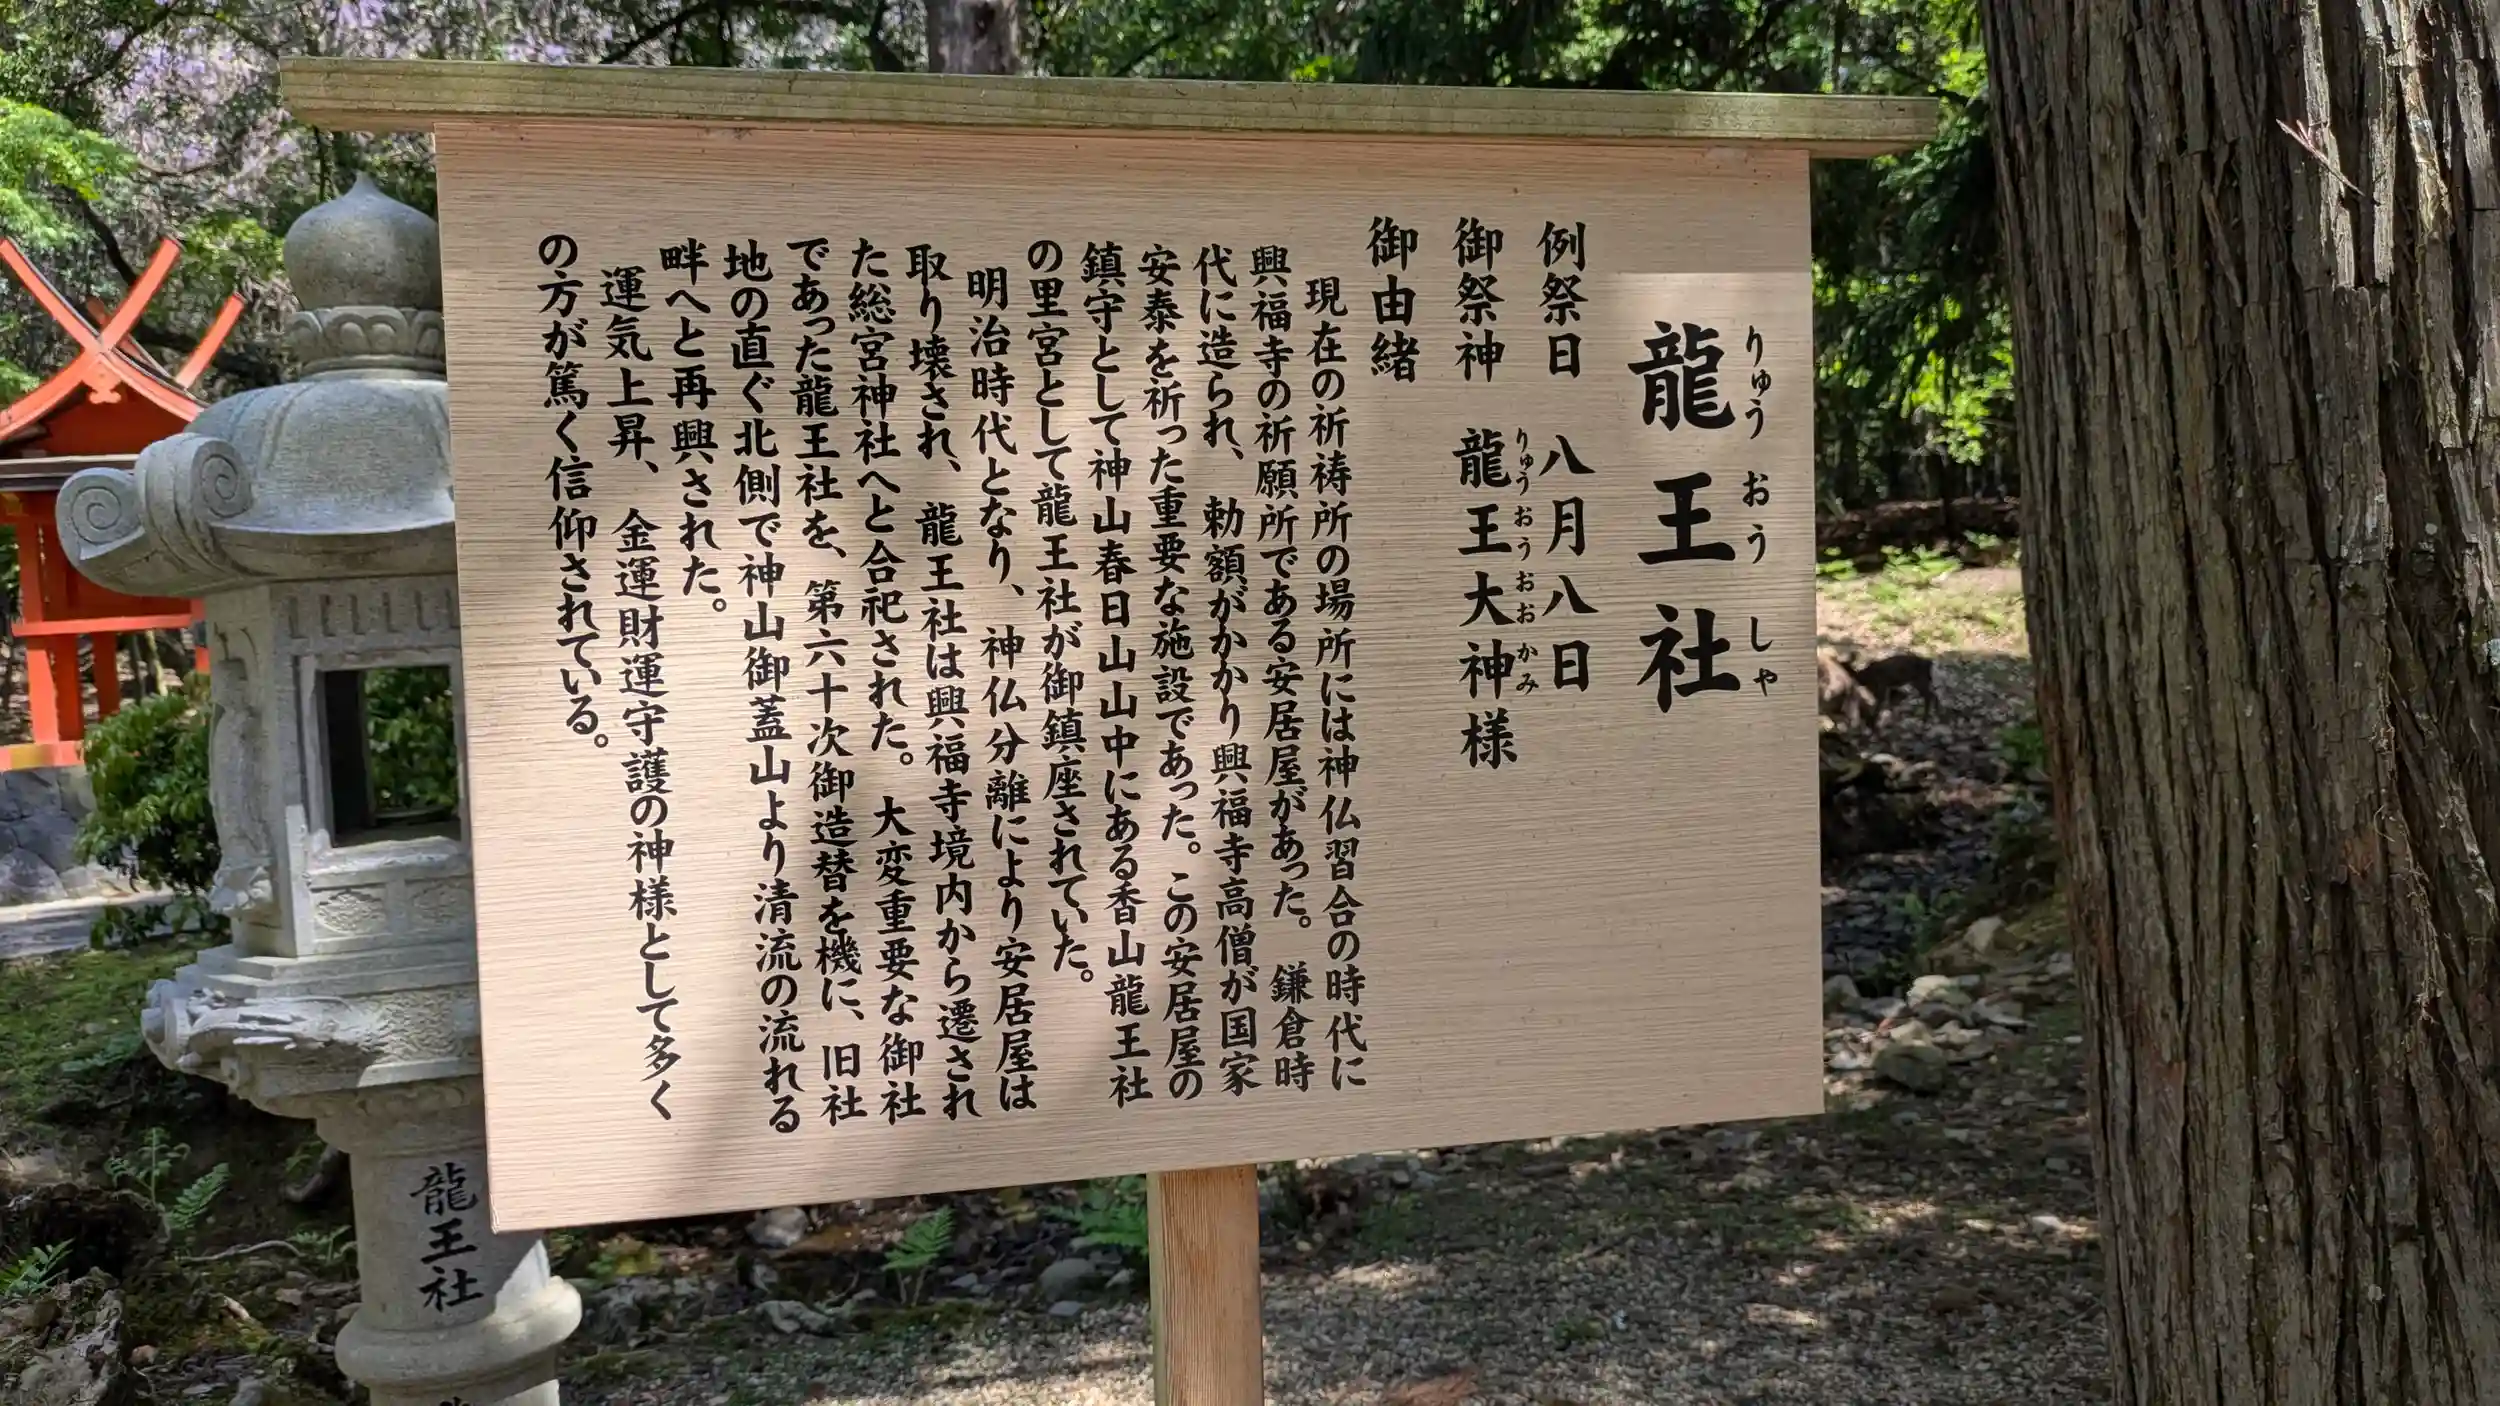 龍王社
りゅう おう しゃ
例祭日 八月八日
御祭神 龍王大神様
りゅうおうおおかみ
御由緒
現在の祈祷所の場所には神仏習合の時代に
興福寺の祈願所である安居屋があった。鎌倉時
代に造られ、勅額がかかり興福寺高僧が国家
安泰を祈った重要な施設であった。この安居屋の
鎮守として神山春日山山中にある香山龍王社
の里宮として龍王社が御鎮座されていた。
明治時代となり、神仏分離により安居屋は
取り壊され、龍王社は興福寺境内から遷され
た総宮神社へと合祀された。大変重要な御社
であった龍王社を、第六十次御造替を機に、旧社
地の直ぐ北側で神山御蓋山より清流の流れる
畔へと再興された。
運気上昇、金運財運守護の神様として多く
の方が篤く信仰されている。
龍王社